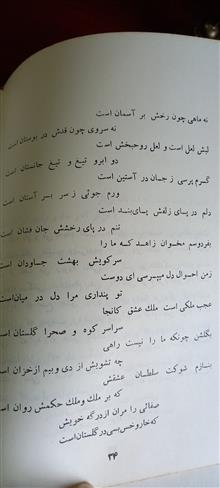 نه ماهی چون رخش بر آسمان است
نه سروی چون قدش در بوستان است
لبش لعل است و لعل روحبخش است
دو ابرو تیغ و تیغ جانستان است
گرم پرسی ز جان در آستین است
ورم جوئی ز سر بر آستان است
دلم در پای زلفش پای‌بند است
تنم در پای رخشش جان فشان است
بفردوسم مخوان زاهد که ما را
سر کویش بهشت جاودان است
ز من احوال دل میپرسی ای دوست
تو پنداری مرا دل در میان است
عجب ملکی است ملک عشق کانجا
سراسر کوه و صحرا گلستان است
بگلشن چونکه ما را نیست راهی
چه تشویش از دی و بیم از خزان است
بنازم شوکت سلطان عشقش
که بر ملك و ملك حکمش روان است
صفائی را مران از درگه خویش
که خار و خس بسی در گلستان است
۳۴